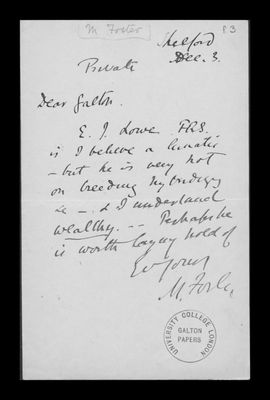 M Foster
83
Shelford
Dec. 3.
Private
Dear Galton.
E. J. Lowe FRS.
is I believe a lunatic
- but he is very hot
on breeding hybridizg
&c - & I understand
wealthy. -- Perhaps he
is worth laying hold of
Ev yours
M. Foster
UNIVERSITY COLLEGE LONDON
GALTON
PAPERS